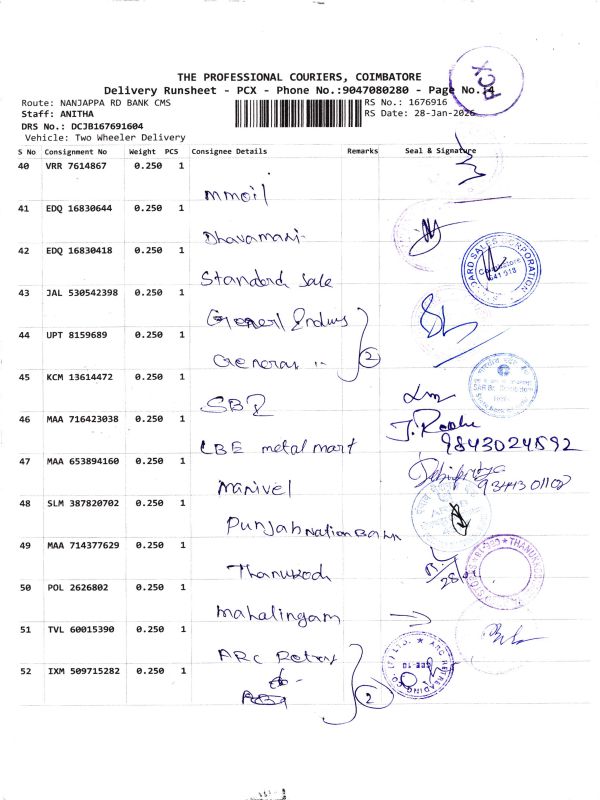 PCX
THE PROFESSIONAL COURIERS, COIMBATORE
Delivery Runsheet - PCX - Phone No.:9047080280 - Page No.:4
Route: NANJAPPA RD BANK CMS
RS No.: 1676916
Staff: ANITHA
RS Date: 28-Jan-2026
DRS No.: DCJB167691604
Vehicle: Two Wheeler Delivery
S No Consignment No Weight PCS Consignee Details Remarks Seal & Signature
40 VRR 7614867 0.250 1
mmoil
41 EDQ 16830644 0.250 1
Dhavamani
42 EDQ 16830418 0.250 1
Standard Sale
43 JAL 530542398 0.250 1
General Endus
44 UPT 8159689 0.250 1
General ..
2
45 KCM 13614472 0.250 1
SBI
46 MAA 716423038 0.250 1
LBE metal mart
9843024592
47 MAA 653894160 0.250 1
manivel
48 SLM 387820702 0.250 1
Punjab Nation Bank
49 MAA 714377629 0.250 1
Thanukodi
50 POL 2626802 0.250 1
mahalingam
51 TVL 60015390 1 0.250 1
ARC Retrey
52 IXM 509715282 0.250 1
2